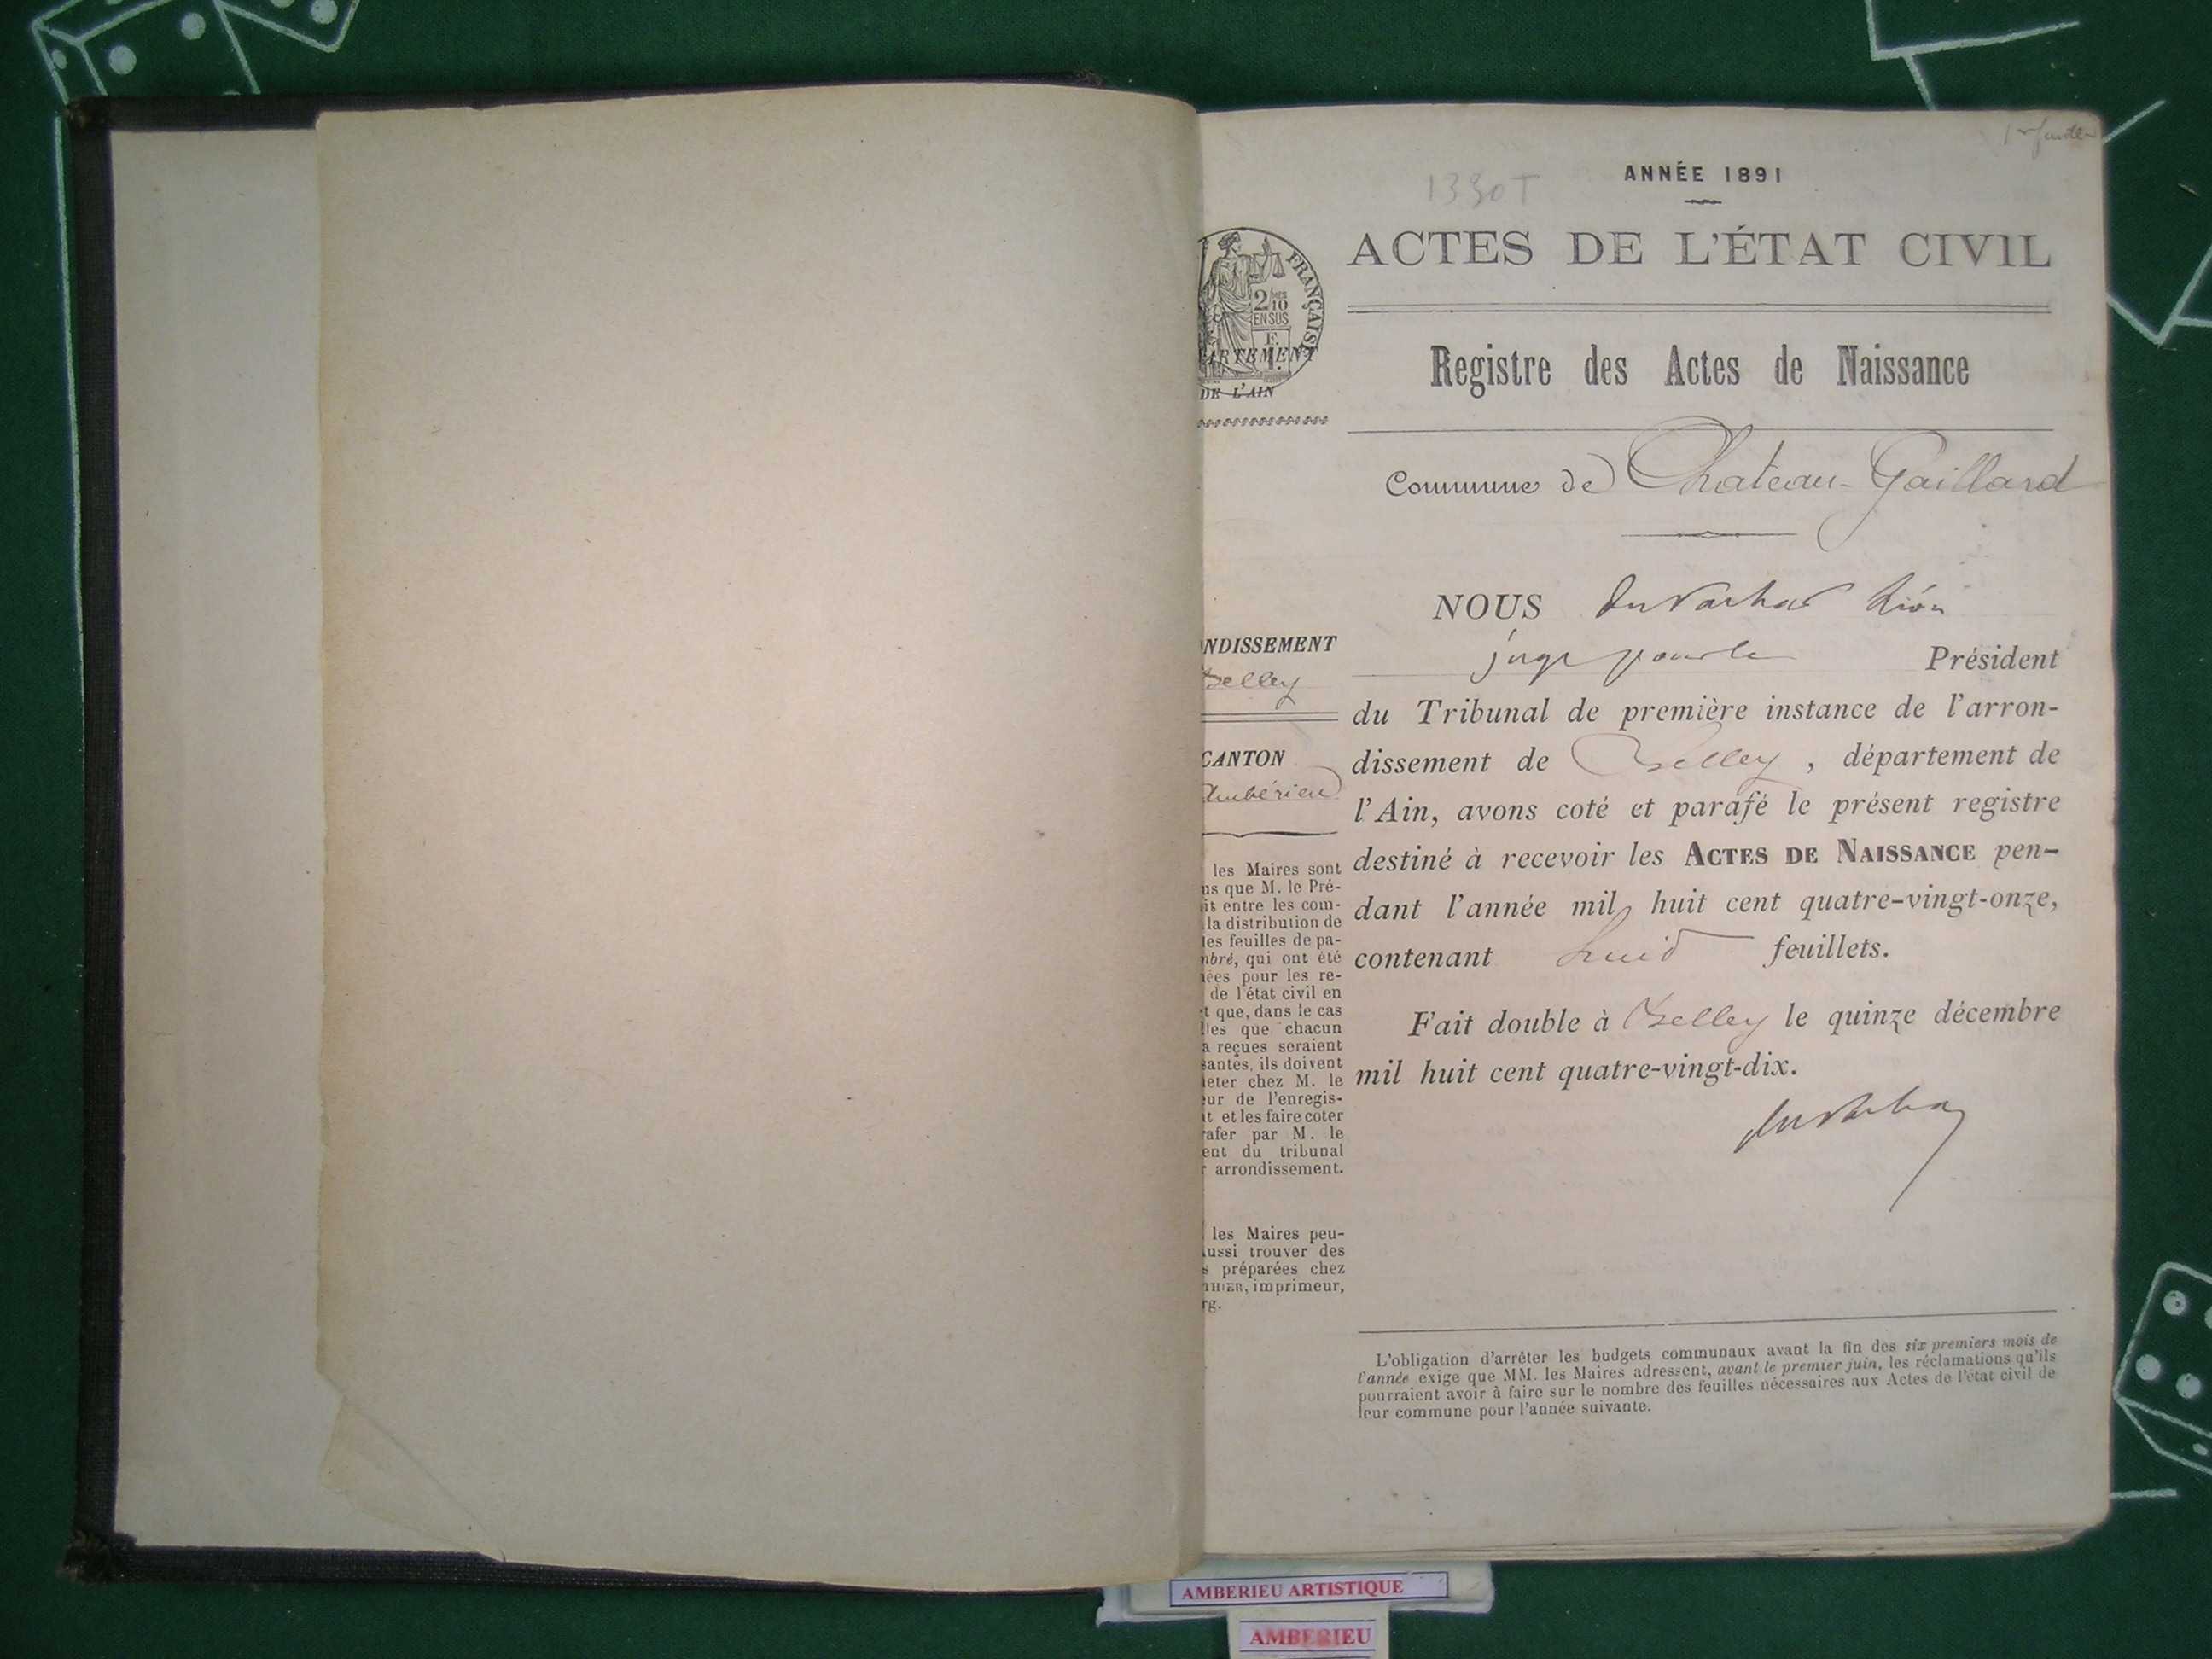 ANNÉE 1891
ACTES DE L'ÉTAT CIVIL
Registre des Actes de Naissance
Commune de Chateau-Gaillard
FRANÇAISE
2/10
EN SUS
ARTEMENT
DE L'AIN
NDISSEMENT
Belley
CANTON
Ambérieu
les Maires sont
us que M. le Pré-
it entre les com-
la distribution de
les feuilles de pa-
mbré, qui ont été
nées pour les re-
de l'état civil en
t que, dans le cas
lles que chacun
a reçues seraient
santes, ils doivent
heter chez M. le
eur de l'enregis-
nt et les faire coter
rafer par M. le
ent du tribunal
r arrondissement.
les Maires peu-
aussi trouver des
s préparées chez
THIER, imprimeur,
rg.
NOUS Léon
juge pour le Président
du Tribunal de première instance de l'arron-
dissement de Belley, département de
l'Ain, avons coté et parafé le présent registre
destiné à recevoir les ACTES DE NAISSANCE pen-
dant l'année mil huit cent quatre-vingt-onze,
contenant huit feuillets.
Fait double à Belley le quinze décembre
mil huit cent quatre-vingt-dix.
L'obligation d'arrêter les budgets communaux avant la fin des six premiers mois de
l'année exige que MM. les Maires adressent, avant le premier juin, les réclamations qu'ils
pourraient avoir à faire sur le nombre des feuilles nécessaires aux Actes de l'état civil de
leur commune pour l'année suivante.
AMBERIEU ARTISTIQUE
AMBERIEU